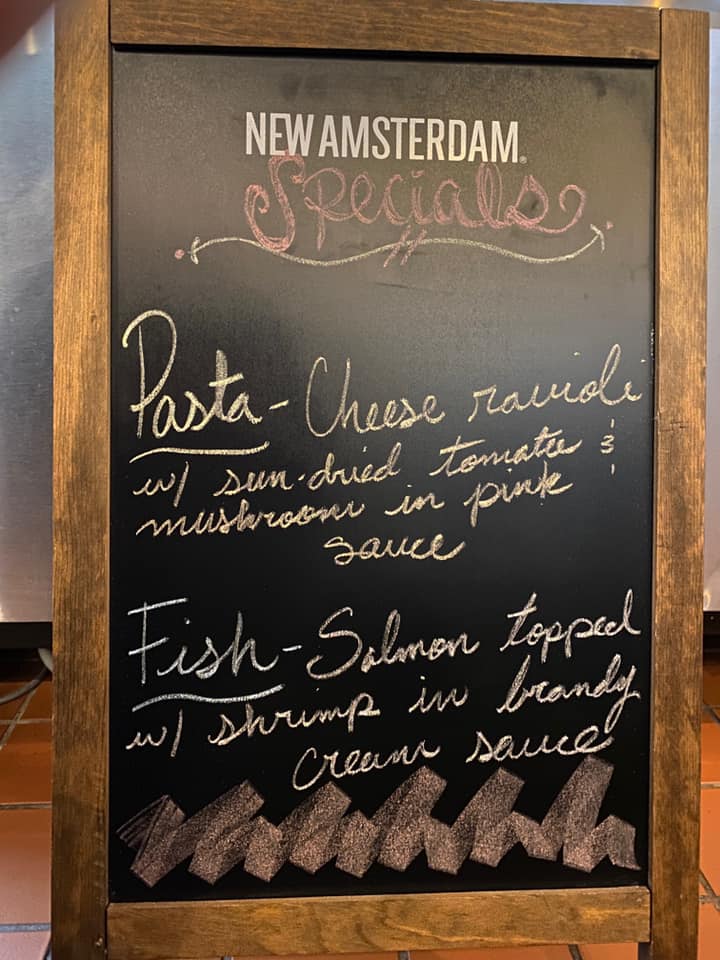 NEW AMSTERDAM®
Specials
Pasta - Cheese ravioli
w/ sun-dried tomatoe &
mushroom in pink
sauce
Fish - Salmon topped
w/ shrimp in brandy
cream sauce